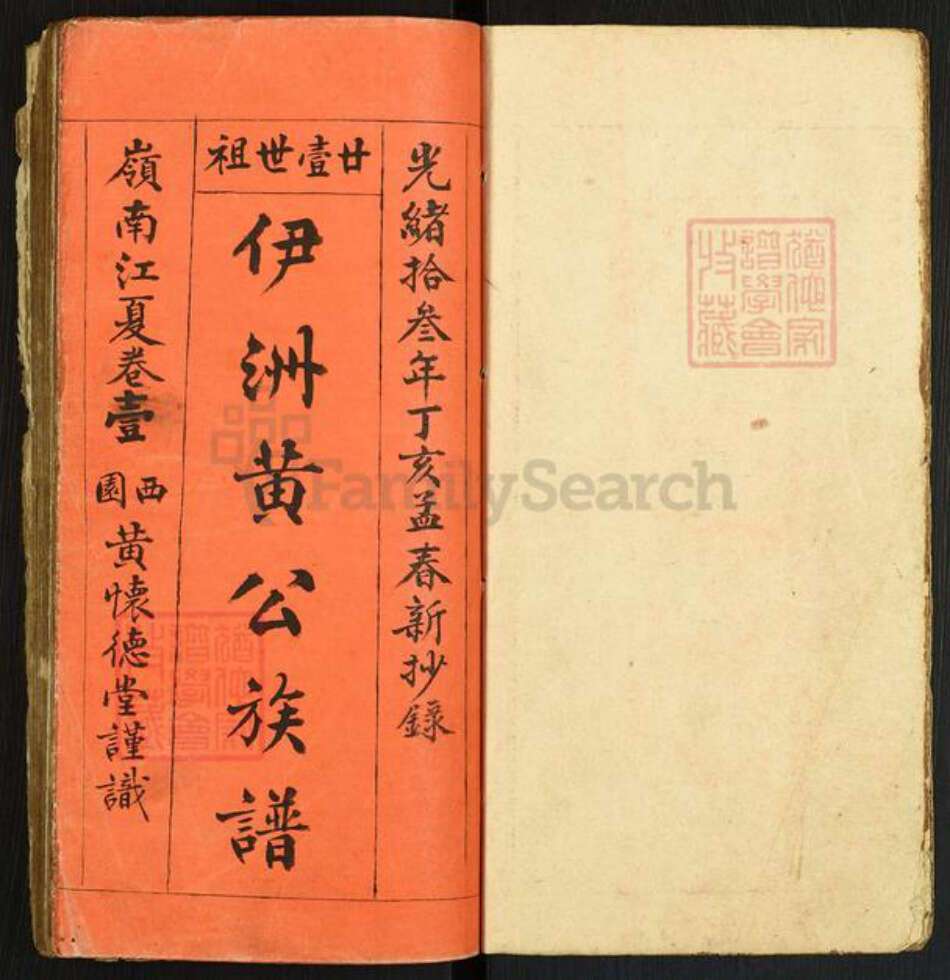 光緒拾叁年丁亥孟春新抄錄
廿壹世祖
伊洲黄公族譜
嶺南江夏卷壹 西園 黄懷德堂謹識
FamilySearch
猶他家
譜學會
收藏